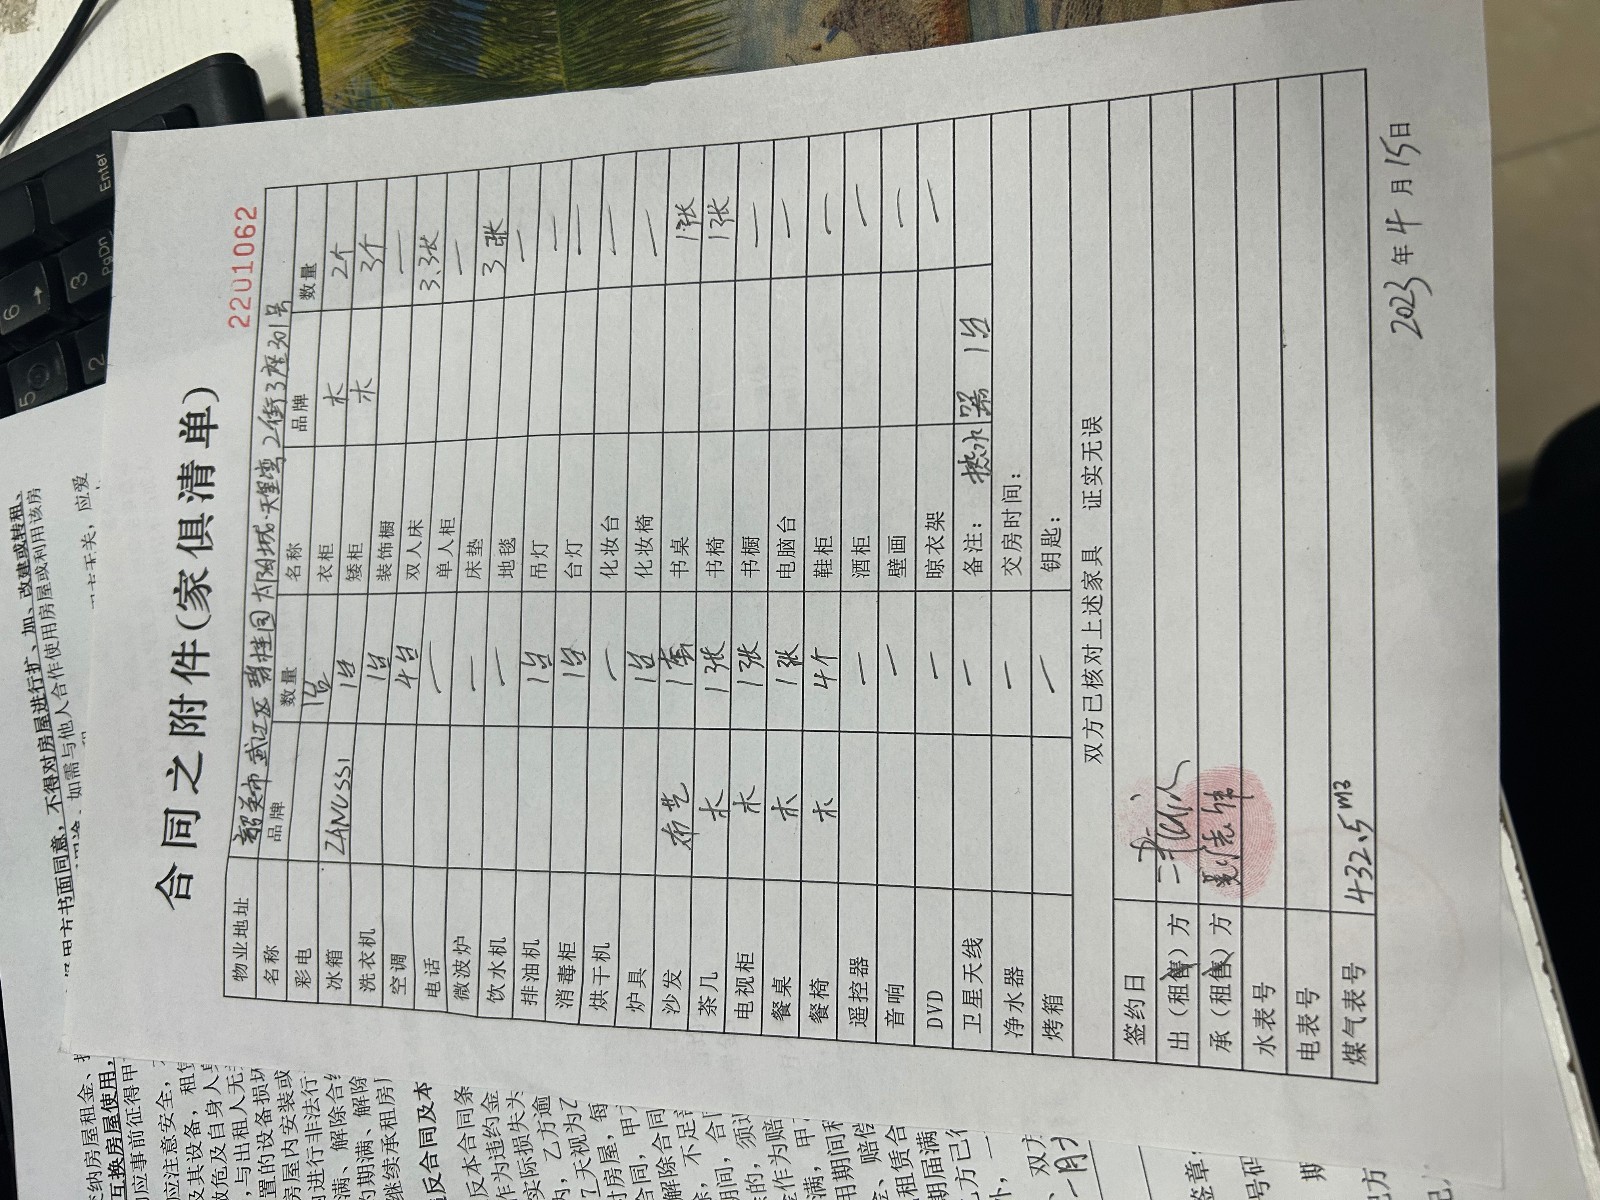 合同之附件(家俱清单)
2201062
物业地址 韶关市武江区碧桂园太阳城·天玺湾2街3座301号
名称 品牌 数量 名称 品牌 数量
彩电 1台 衣柜 木 2个
冰箱 ZANUSSI 1台 矮柜 木 3个
洗衣机 1台 装饰橱 —
空调 4台 双人床 3.3张
电话 — 单人柜 —
微波炉 — 床垫 3张
饮水机 — 地毯 —
排油机 1台 吊灯 —
消毒柜 1台 台灯 —
烘干机 — 化妆台 —
炉具 1台 化妆椅 —
沙发 布艺 1套 书桌 1张
茶几 木 1张 书椅 1张
电视柜 木 1张 书橱 —
餐桌 木 1张 电脑台 —
餐椅 木 4个 鞋柜 —
遥控器 — 酒柜 —
音响 — 壁画 —
DVD — 晾衣架 —
卫星天线 — 备注: 热水器 1台
净水器 — 交房时间:
烤箱 — 钥匙:
双方已核对上述家具 证实无误
签约日
出(租售)方
承(租售)方
水表号
电表号
煤气表号 432.5m3
2023年4月15日
不得对房屋进行扩、加、改建或转租、
如需与他人合作使用房屋或利用该房
应爱
互换房屋使用,
反合同及本
Enter
PgDn
3
6
2
5